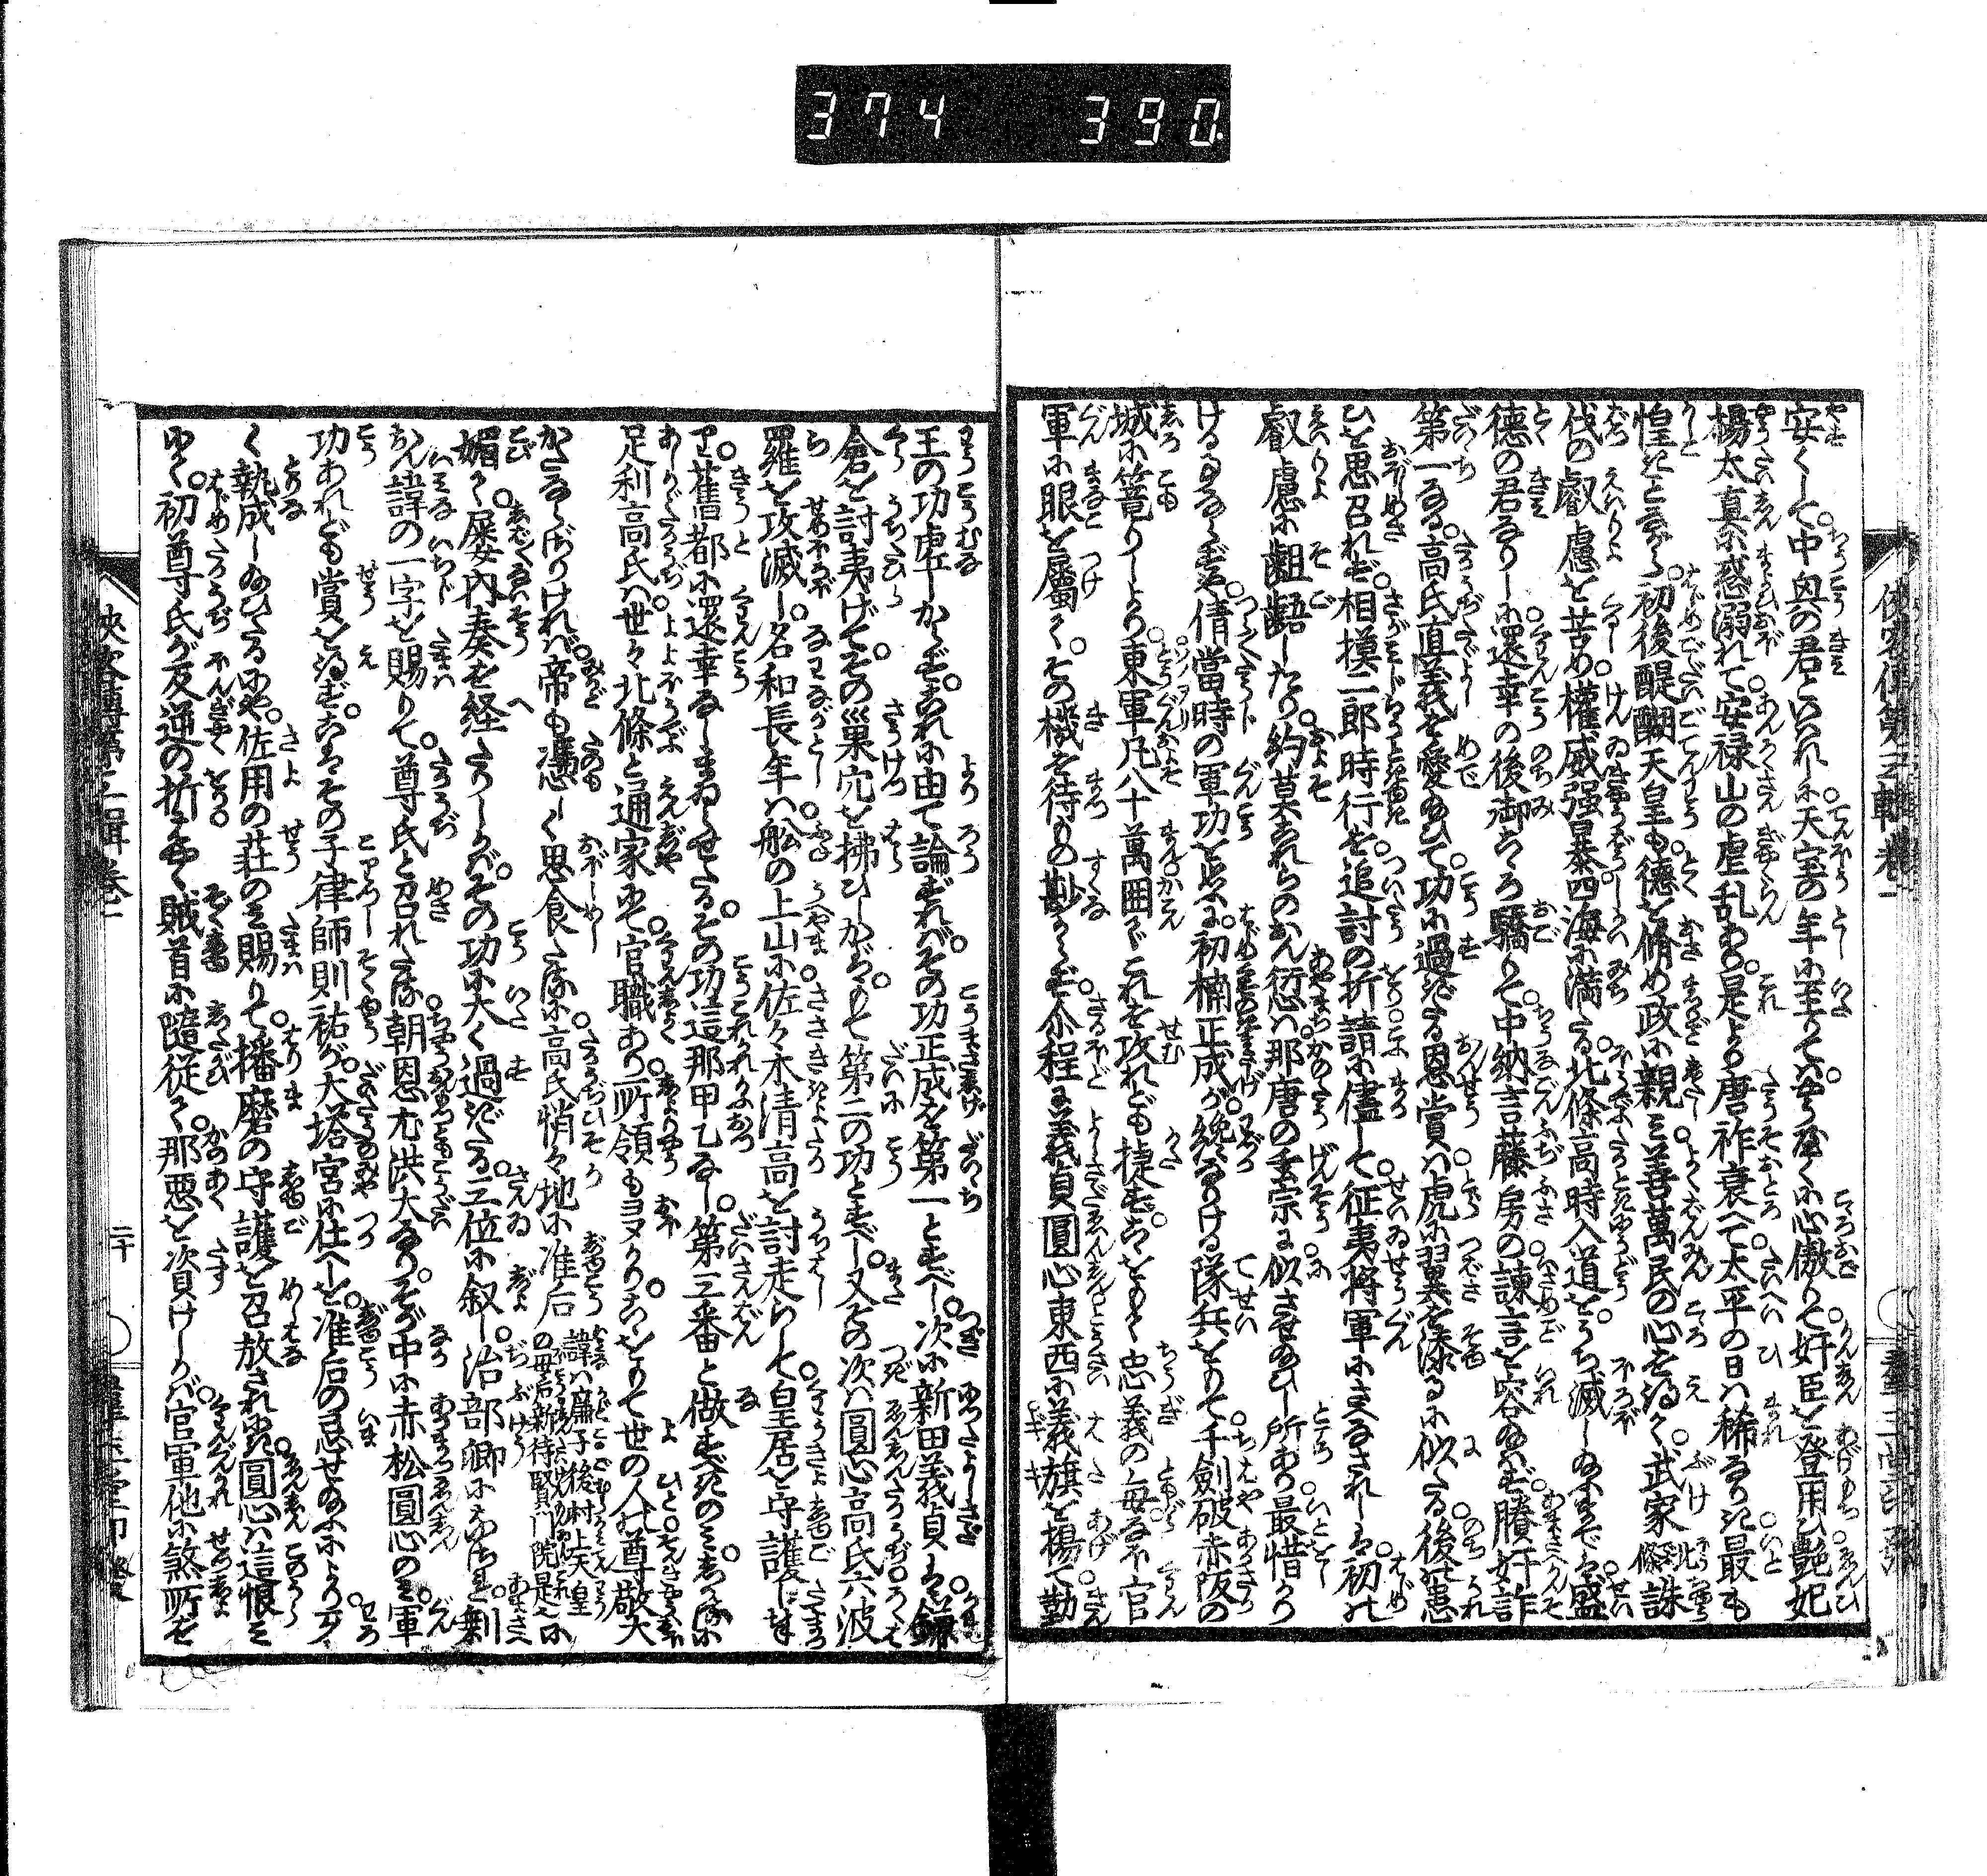 374 390
安くして中興の君といはれしに天宝の年に至りては。やうやく心傲りて奸臣を登用ひ艶妃
楊太真に惑溺れて安禄山の虐乱あり。是より唐祚衰へて太平の日は稀なりき最も
惶きことながら初後醍醐天皇も。徳を脩め政に親み善萬民の心を得て武家北條誅
伐の叡慮を苦め權威强暴四海に満たる。北條高時入道をうち滅し給ふまでは盛
徳の君なりしに還幸の後御こゝろ驕りて。中納言藤房の諫言を容給はず。賸奸詐
第一なる。高氏直義を愛給ひて。功に過たる恩賞は虎に翼を添るに似たる後の患
ひを思召れず。相摸二郎時行を。追討の折請に儘して征夷将軍になされしは。初の
叡慮に齟齬したり。約莫これらのおん愆は那唐の玄宗に似させ給ひし所あり最惜かり
けるならずや。倩當時の軍功を思ふに。初楠正成が纔なりける隊兵をもて千劍破赤阪の
城に篭りしより東軍凡八十萬囲てこれを攻れども捷ず。こゝをもて忠義の毎なほ官
軍に眼を屬て。その機を待もの尠からず。介程に義貞圓心東西に義旗を揚て勤
王の功虚しからず。これに由て論ずれば。その功正成を第一とすべし。次に新田義貞は鎌
倉を討夷げて。その巣穴を拂ひしかば。もて第二の功とすべし。又その次は圓心高氏六波
羅を攻滅し。名和長年は舩の上山に佐々木清高を討走らして皇居を守護しまゐ
せ。舊都に還幸なしまゐらせたる。その功這那甲乙なし。第三番と做すべきのみ。しかるに
足利高氏は世々北條と通家にて。官職あり所領もヨヌかり。こゝをもて世の人の尊敬大
かたならざりければ。帝も憑しく思食たるに高氏悄々地に准后諱は廉子後村上天皇の母后新待賢門院是也に
媚て屡内奏を経たりしかば。その功に大く過たる三位に叙し。治部卿になされ剩
おん諱の一字を賜りて。尊氏と召れたる。朝恩尤洪大なり。そが中に赤松圓心のみ軍
功あれども賞を得ず。こはその子律師則祐が。大塔宮に仕へしを。准后の忌せ給ふにより
て執成し給ひたるにや。佐用の荘のみ賜りて播磨の守護を召放されにき。圓心は這恨み
ゆゑ初尊氏が反逆の折より賊首に隨従て。那悪を資けしかば官軍他に煞所を